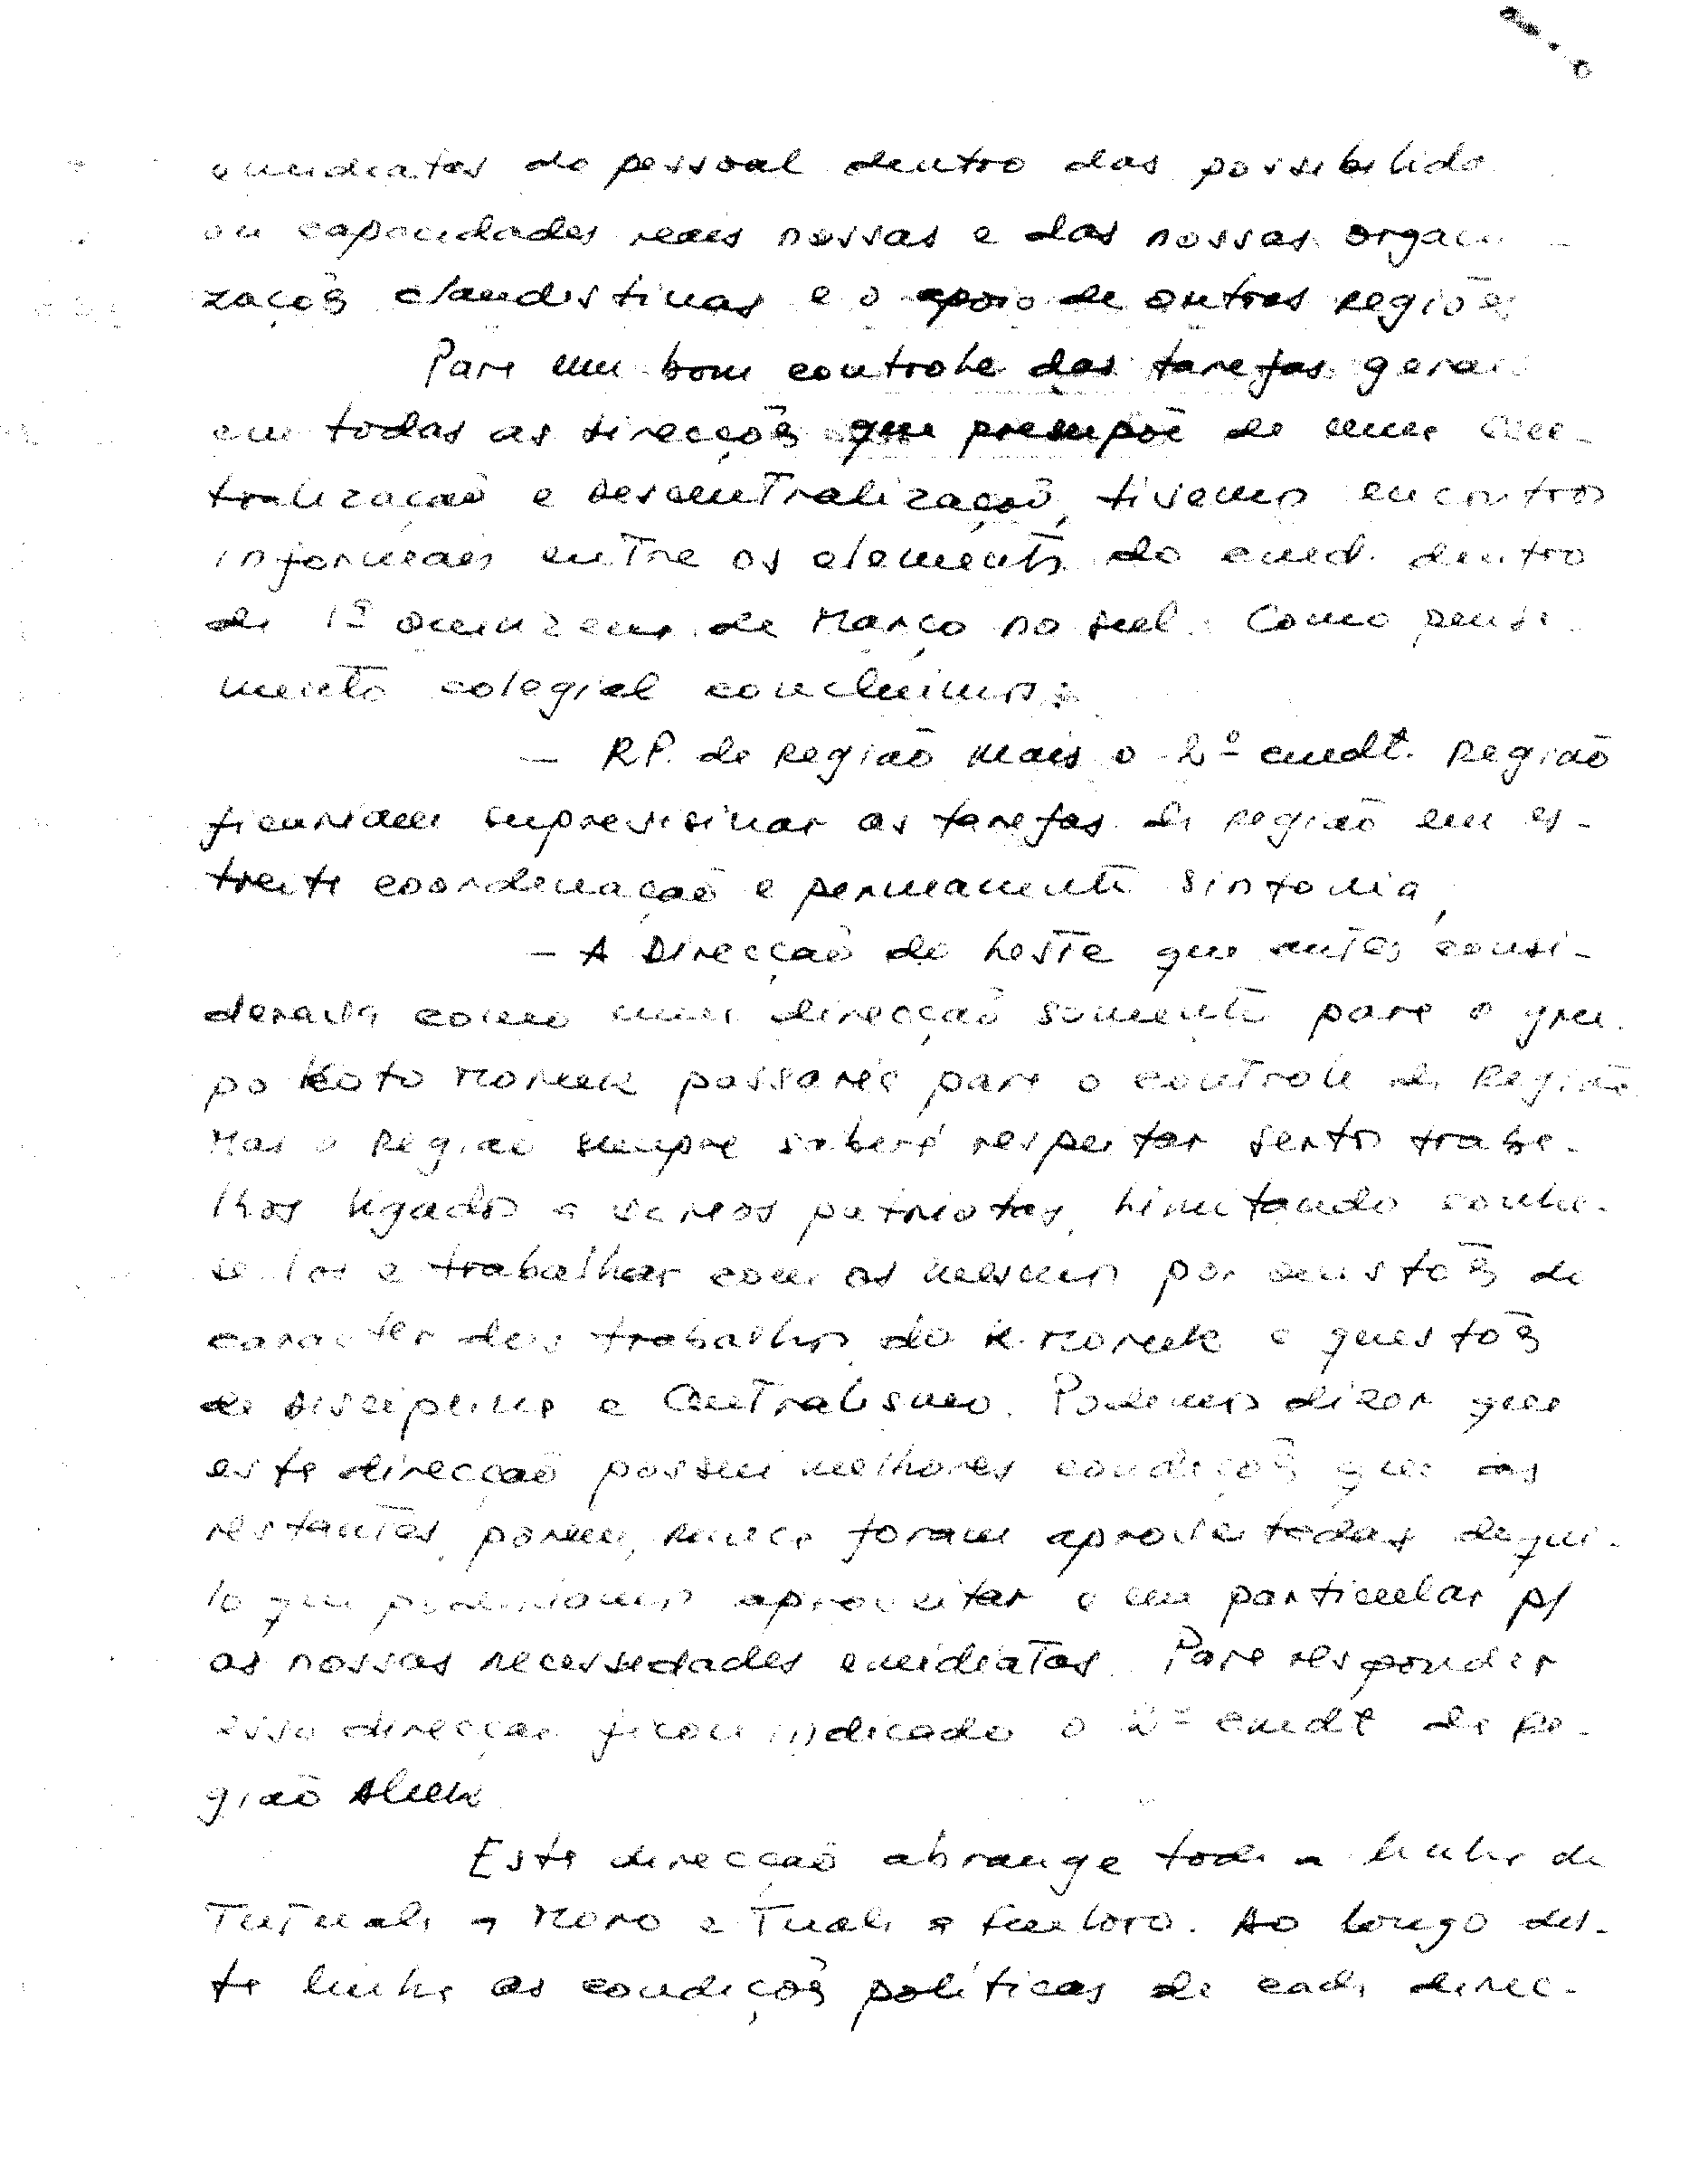 emidiatas do pessoal dentro das possibilida
ou capacidades reais nossas e das nossas organi
zaçoẽs clandestinas e o apoio de outras regioẽs
Para um bom controle das tarefas gerai
em todas as direcçoẽs que presupoẽ de uma Cen-
tralizaçaõ e descentralizaçaõ, tivemos encontros
informais entre os elementos do cmd. dentro
da 1ª quinzena de Março no sul. Como pensa
mento colegial concluimos:
- R.P. da Regiaõ mais o 2º cmdt. Regiaõ
ficariam supervisinar as tarefas da regiaõ em es-
treita coordenaçaõ e permanente sintonia,
- A Direcçaõ do Leste que antes consi-
derava como uma direcçaõ somente para o gru
po Koto Moruk passará para o controle da Regiaõ
Mas a Regiaõ sempre saberá respeitar sertos traba-
lhos ligados a varios patriotas, limitando conhe-
ce-los e trabalhar com os mesmos por questoẽs de
caracter dos trabalhos do K. Moruk e questoẽs
de disciplina e Centralismo. Podemos dizer que
esta direcçaõ possui melhores condiçoẽs que as
restantes, porem, nunca foram aproveitadas daqui-
lo que poderiamos aproveitar e em particular p/
as nossas necessidades emidiatas. Para responder
essa direcçaõ ficou indicado o 2º cmdt da Re-
giaõ Aluk
Esta direcçaõ abrange toda a linha de
Tutuala a Moro e Tuala a Luro. Ao longo des-
ta linha as condiçoẽs políticas de cada direc-